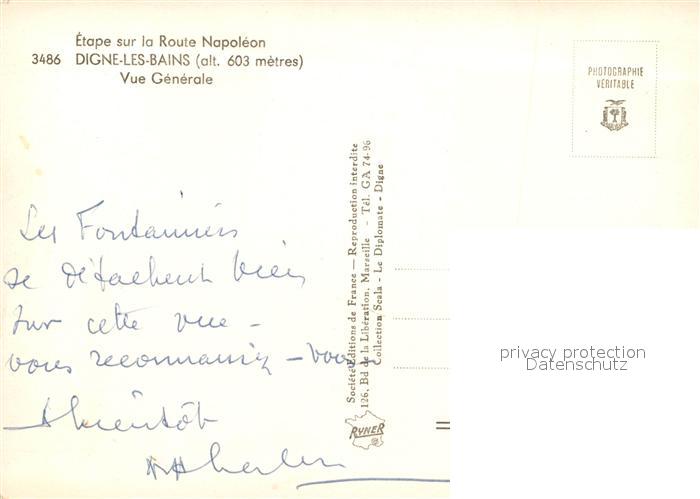 Étape sur la Route Napoléon
3486 DIGNE-LES-BAINS (alt. 603 mètres)
Vue Générale
PHOTOGRAPHIE
VÉRITABLE
Les Fontainiers
se détachent bien
sur cette vue -
vous reconnaissez - vous
A bientôt
Société Editions de France — Reproduction interdite
126, Bd de la Libération, Marseille - Tél. GA 74-96
Collection Scala - Le Diplomate - Digne
RYNER
privacy protection
Datenschutz